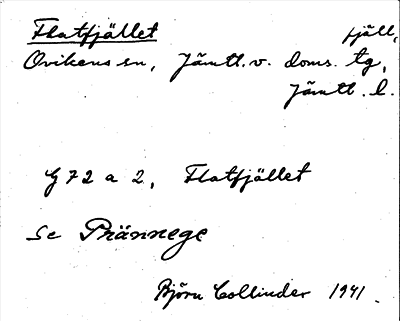 Flatfjället fjäll,
Ovikens sn, Jämtl. v. doms. tg,
Jämtl. l.
G 72 a 2, Flatfjället
Se Prännege
Björn Collinder 1941.